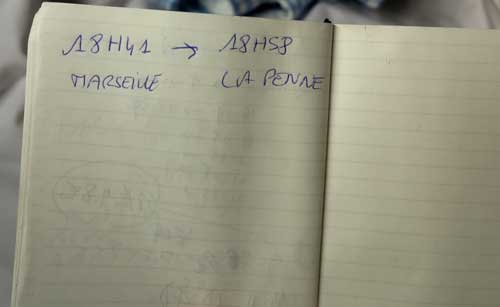 18H41 → 18H58
MARSEILLE LA PENNE